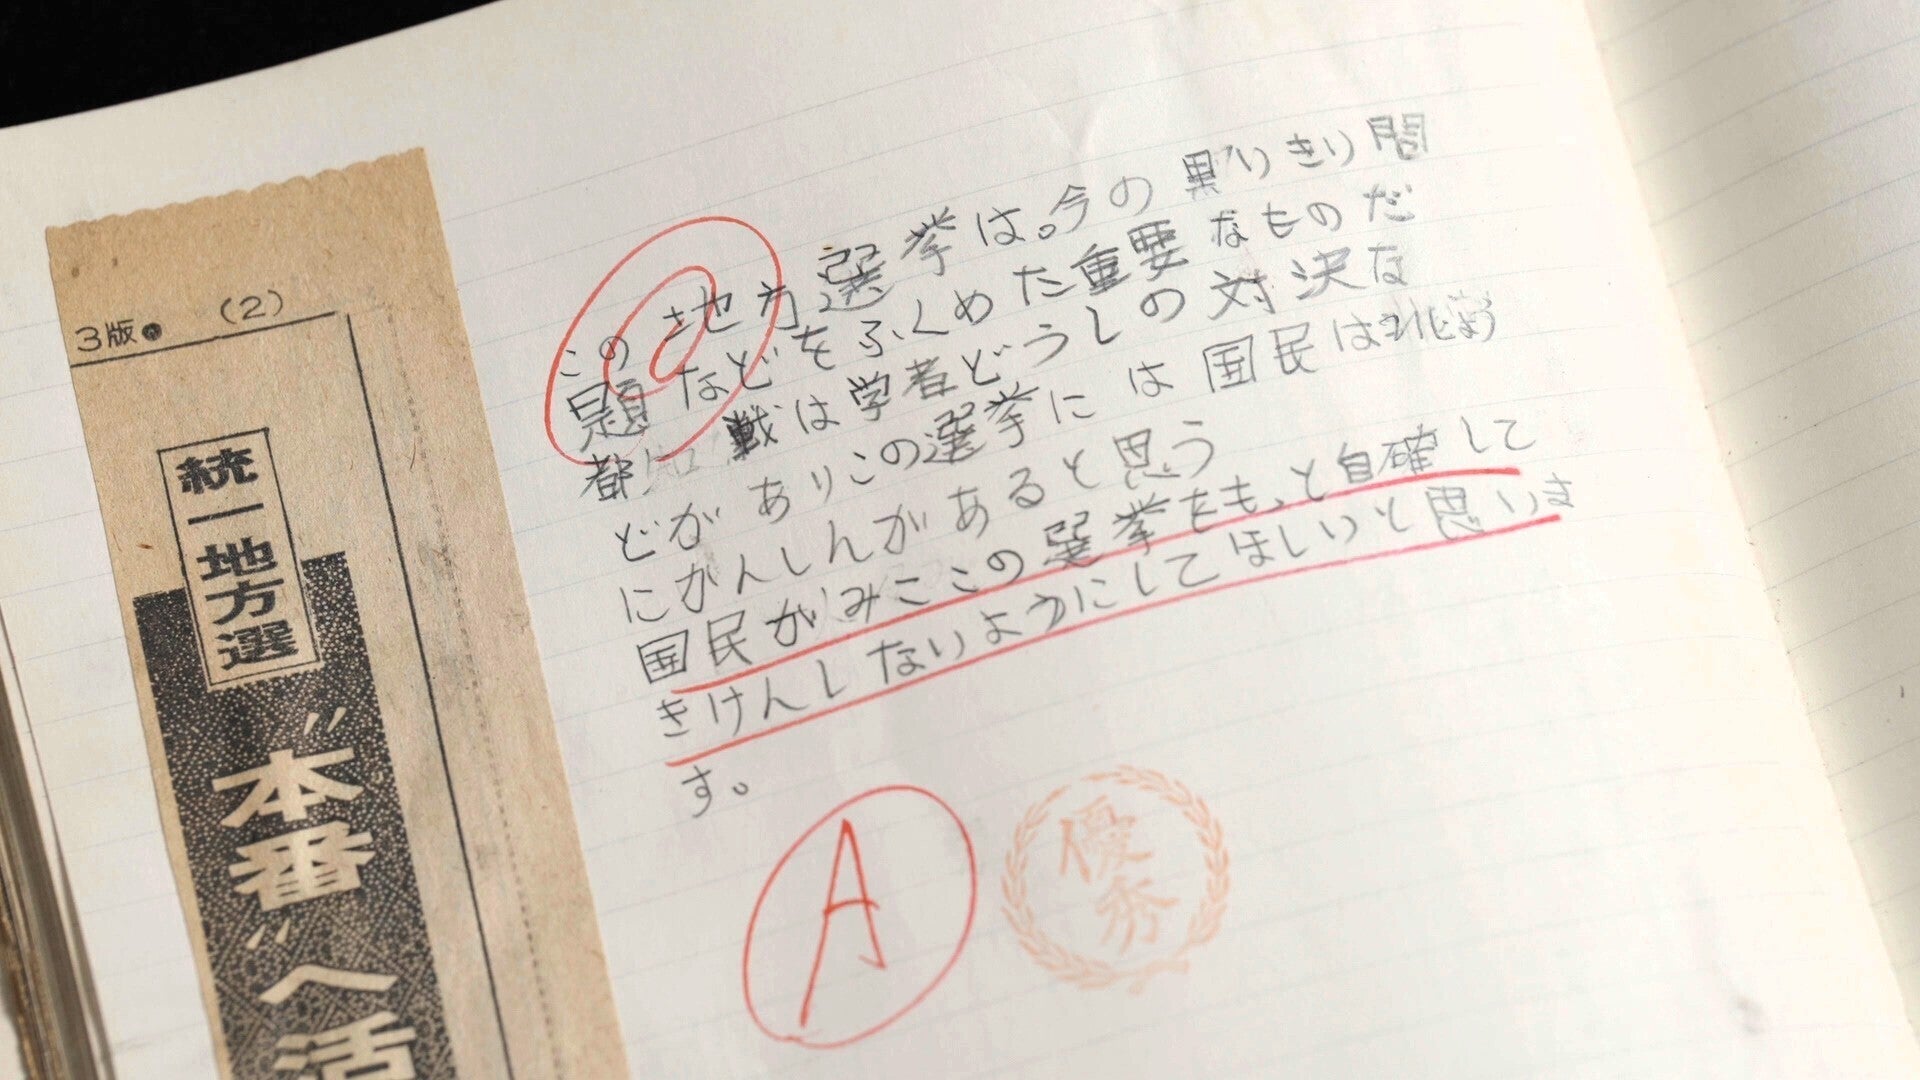 3版 (2)
統一地方選
"本番"へ活
この地方選挙は。今の黒いきり問
題などをふくめた重要なものだ
都知戦は学者どうしの対決な
どがありこの選挙には国民は
にがんしんがあると思う
国民がみここの選挙をもっと自確して
きけんしないようにしてほしいと思いま
す。
A
優秀